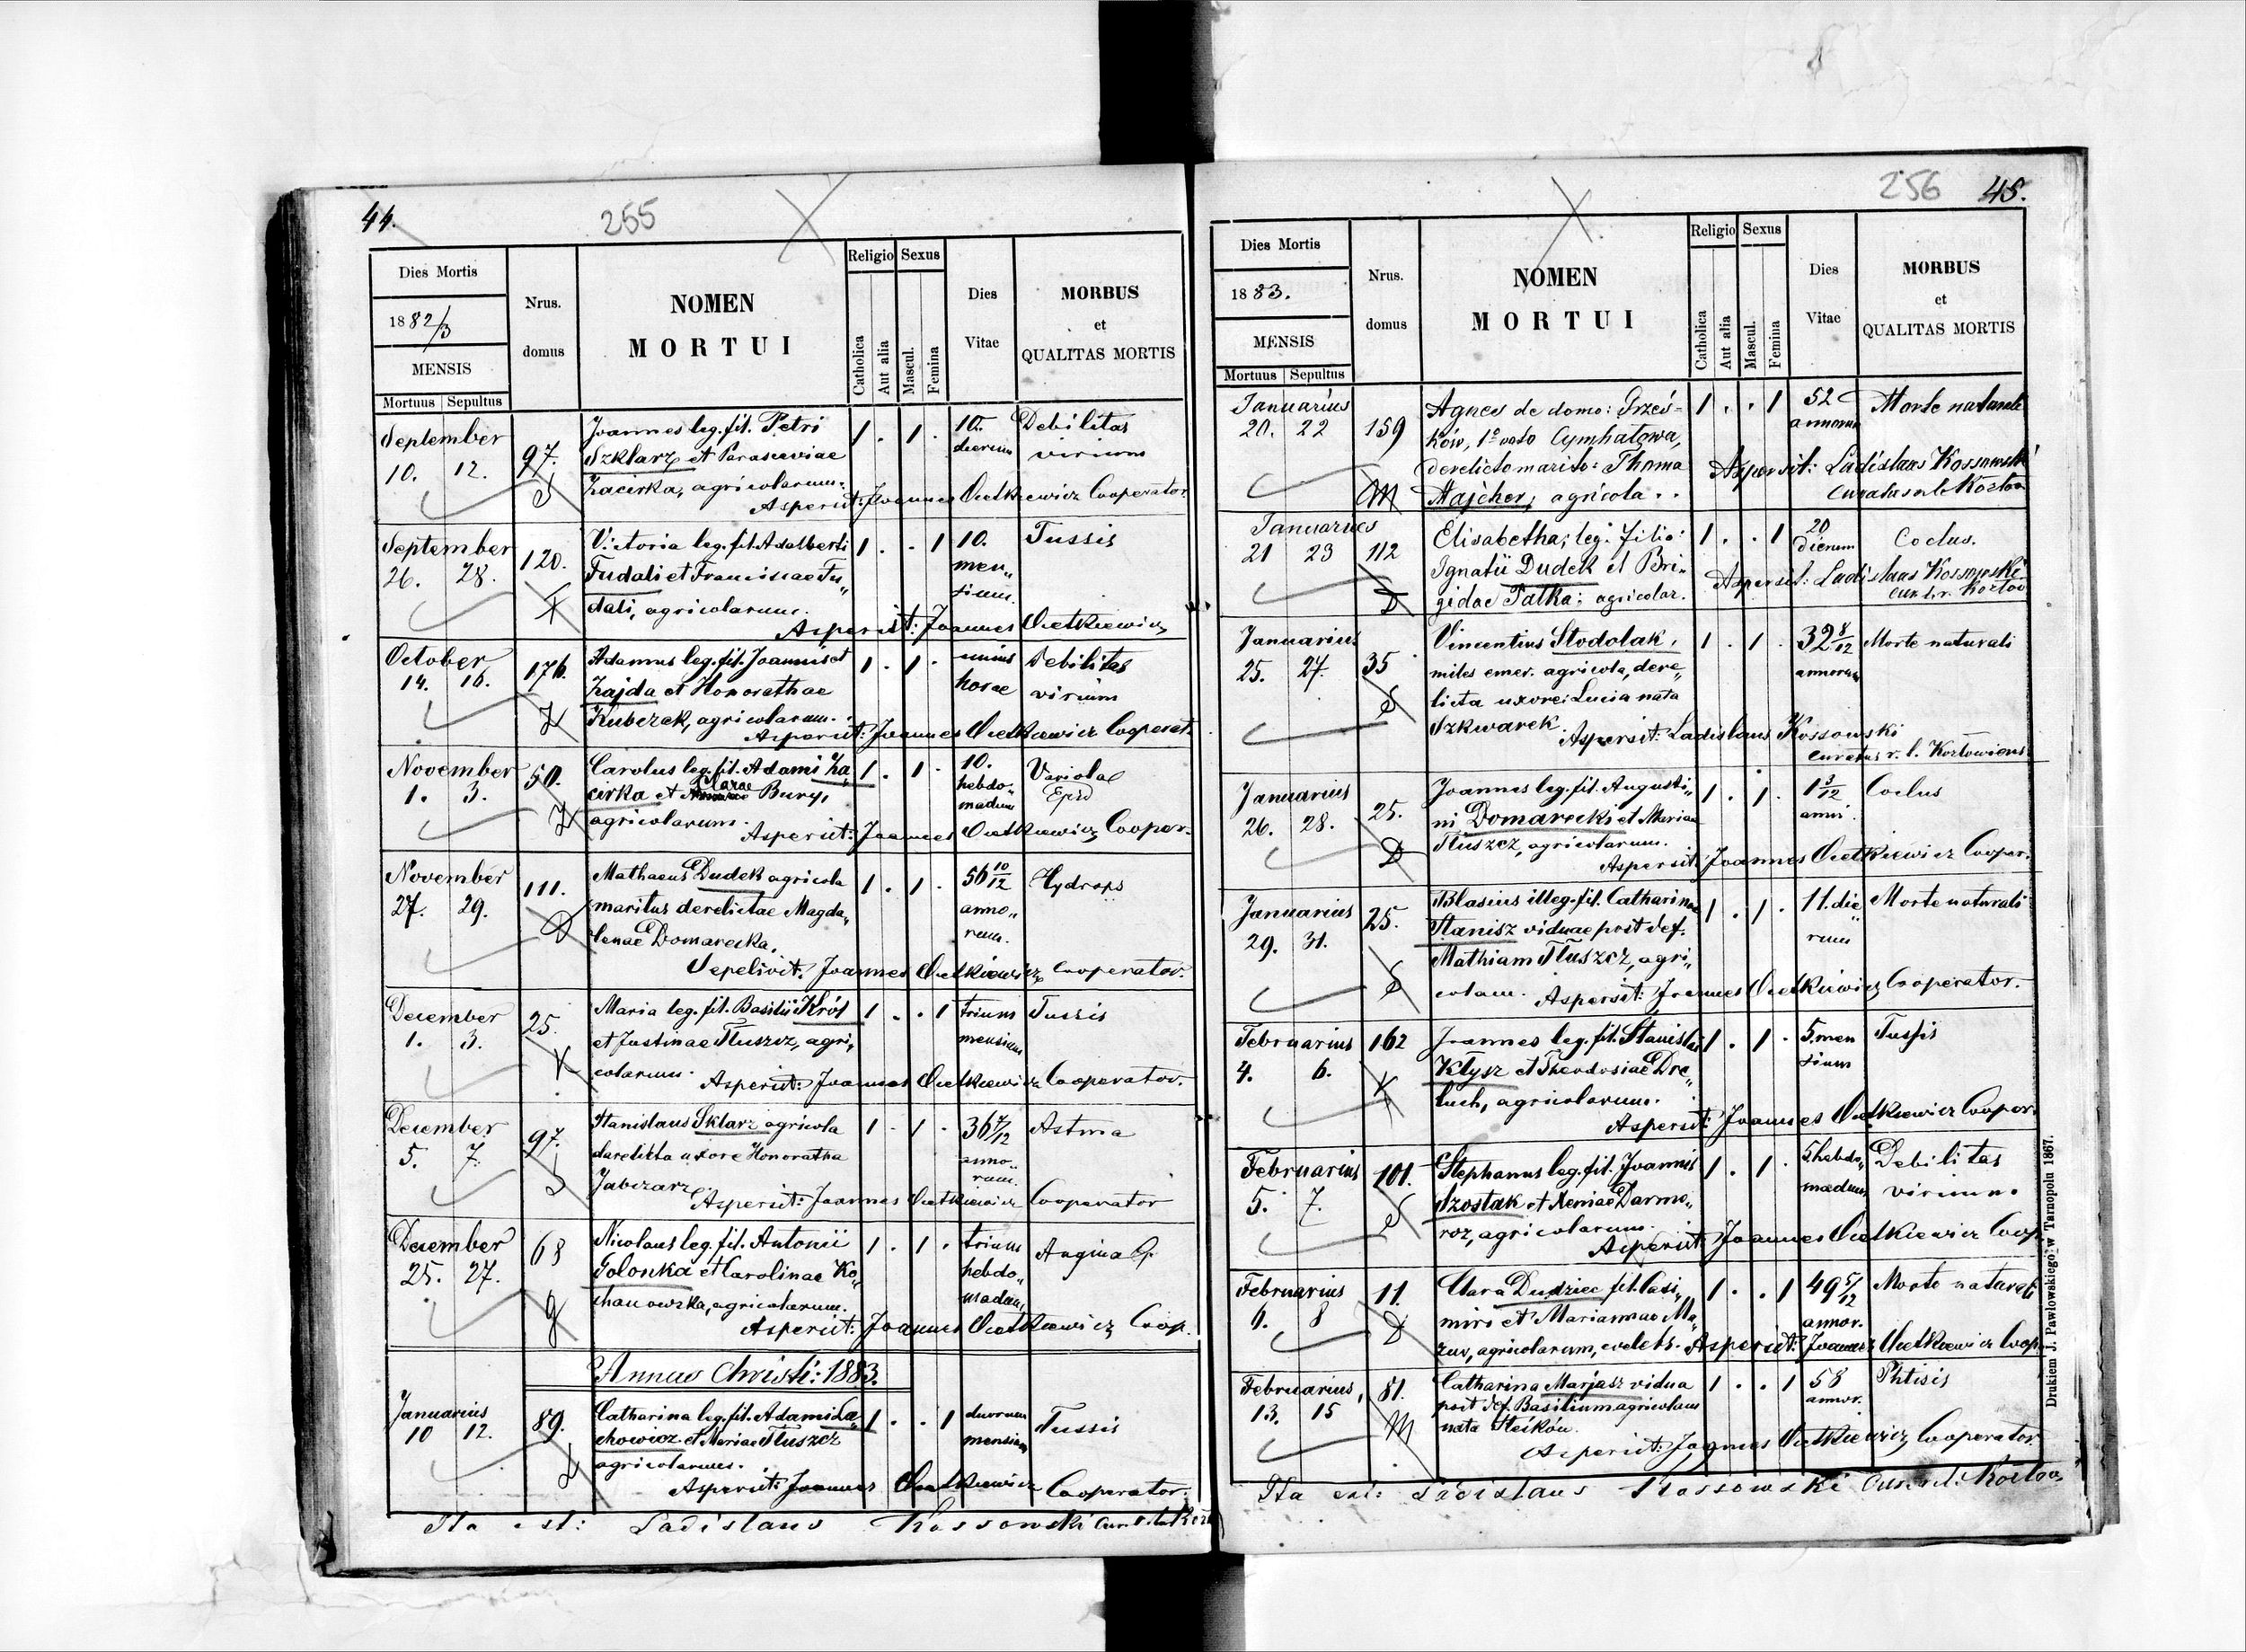 44.
255
Dies Mortis
1882/3
MENSIS
Mortuus Sepultus
Nrus. domus
NOMEN
MORTUI
Religio
Catholica
Aut alia
Sexus
Mascul.
Femina
Dies Vitae
MORBUS
et
QUALITAS MORTIS
September
10. 12.
97.
S
Joannes leg. fil. Petri
Szklarz et Parasceviae
Zacirka, agricolarum.
1 . 1 .
10.
dierum
Debilitas
virium
Aspersit: Joannes Cwetkiewicz Cooperator
September
26. 28.
120.
F
Victoria leg. fil. Adalberti
Fudali et Franciscae Fu„
dali, agricolarum.
1 . . 1
10.
men„
sium.
Tussis
Aspersit: Joannes
October
14. 16.
176.
Z
Adamus leg. fil. Joannis et
Zajda et Honorathae
Kubczek, agricolarum.
1 . 1 .
unius
horae
Debilitas
virium
Aspersit: Joannes Cooperat
November
1. 3.
50.
Z
Carolus leg. fil. Adami Za„
cirka et Clarae Bury,
agricolarum.
1 . 1 .
10.
hebdo„
madum
Variola
Epid
Aspersit: Joannes Cooper.
November
27. 29.
111.
D
Mathaeus Dudek agricola
maritus derelictae Magda„
lenae Domarecka.
1 . 1 .
56 10/12
anno„
rum.
Hydrops
Sepelivit: Joannes Cooperator.
December
1. 3.
25.
K
Maria leg. fil. Basilii Król
et Justinae Tłuszcz, agri„
colarum.
1 . . 1
trium
mensium
Tussis
Aspersit: Joannes Cooperator.
December
5. 7.
97.
S
Stanislaus Sklarz agricola
derelicta uxore Honoratha
Jabczarz.
1 . 1 .
36 7/12
anno„
rum.
Astma
Aspersit: Joannes Cooperator
December
25. 27.
68
G
Nicolaus leg. fil. Antonii
Golonka et Carolinae Ko„
chanowska, agricolarum.
1 . 1 .
trium
hebdo„
madum
Angina
Aspersit: Joannes Coop.
Annus Christi: 1883.
Januarius
10 12.
89.
L
Catharina leg. fil. Adami La„
chowicz et Mariae Tłuszcz
agricolarum.
1 . . 1
duorum
mensium
Tussis
Aspersit: Joannes Cooperator.
Ita est: Ladislaus Kossowski
256
45.
Dies Mortis
1883.
MENSIS
Mortuus Sepultus
Nrus. domus
NOMEN
MORTUI
Religio
Catholica
Aut alia
Sexus
Mascul.
Femina
Dies Vitae
MORBUS
et
QUALITAS MORTIS
Januarius
20. 22
159
M
Agnes de domo: Grześ-
ków, 1o voto Cymhatowa,
derelicto marito: Thoma
Majcher, agricola..
1 . . 1
52
annorum
Morte naturale
Aspersit: Ladislaus Kossowski
Januarius
21 23
112
D
Elisabetha, leg. filia:
Ignatii Dudek et Bri„
gidae Patka: agricolar.
1 . . 1
20
dierum
Coclus.
Aspersit: Ladislaus Kossowski
Januarius
25. 27.
35
S
Vincentius Stodolak,
miles emer. agricola, dere„
licta uxore: Lucia nata
Szkwarek.
1 . 1 .
32 8/12
annorum
Morte naturali
Aspersit: Ladislaus Kossowski
curatus r. l. Kozłoviens.
Januarius
26. 28.
25.
D
Joannes leg. fil. Augusti„
ni Domarecki et Mariae
Tłuszcz, agricolarum.
1 . 1 .
1 3/12
anni.
Coclus
Aspersit: Joannes Cooper.
Januarius
29. 31.
25.
S
Blasius illeg. fil. Catharinae
Stanisz viduae post def.
Mathiam Tłuszcz, agri„
colam.
1 . 1 .
11. die„
rum
Morte naturali
Aspersit: Joannes Cooperator.
Februarius
4. 6.
162
K
Joannes leg. fil. Stanislai
Kłysz et Theodosiae Dre„
luch, agricolarum.
1 . 1 .
5. men
sium
Tussis
Aspersit: Joannes Cooper.
Februarius
5. 7.
101.
S
Stephanus leg. fil. Joannis
Szostak et Xeniae Darmo„
roz, agricolarum.
1 . 1 .
5 hebdo„
madum
Debilitas
virium.
Aspersit: Joannes Coop.
Februarius
6. 8
11.
D
Clara Dudziec fil. Casi„
miri et Mariannae Ma„
zur, agricolarum, coelebs.
1 . . 1
49 5/12
annor.
Morte naturali
Aspersit: Joannes Coop.
Februarius
13. 15
81.
M
Catharina Marjasz vidua
post def. Basilium agricolam
nata Steików.
1 . . 1
58
annor.
Phtisis
Aspersit: Joannes Cooperator.
Ita est: Ladislaus Kossowski
Drukiem J. Pawłowskiego w Tarnopolu 1867.